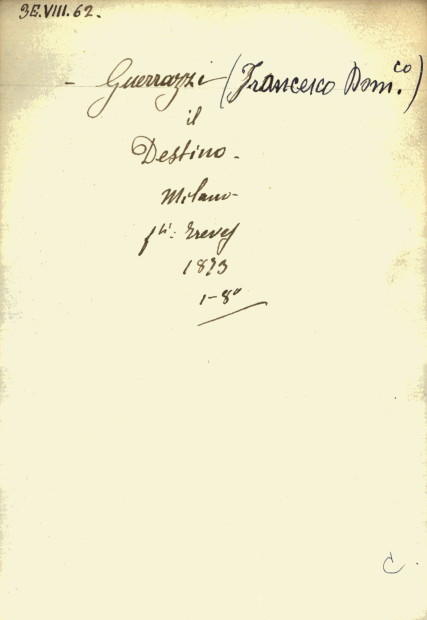 3E.VIII.62.
- Guerrazzi (Francesco Dom.co)
il
Destino.
Milano
f.lli: Treves
1873
1-8°
C.